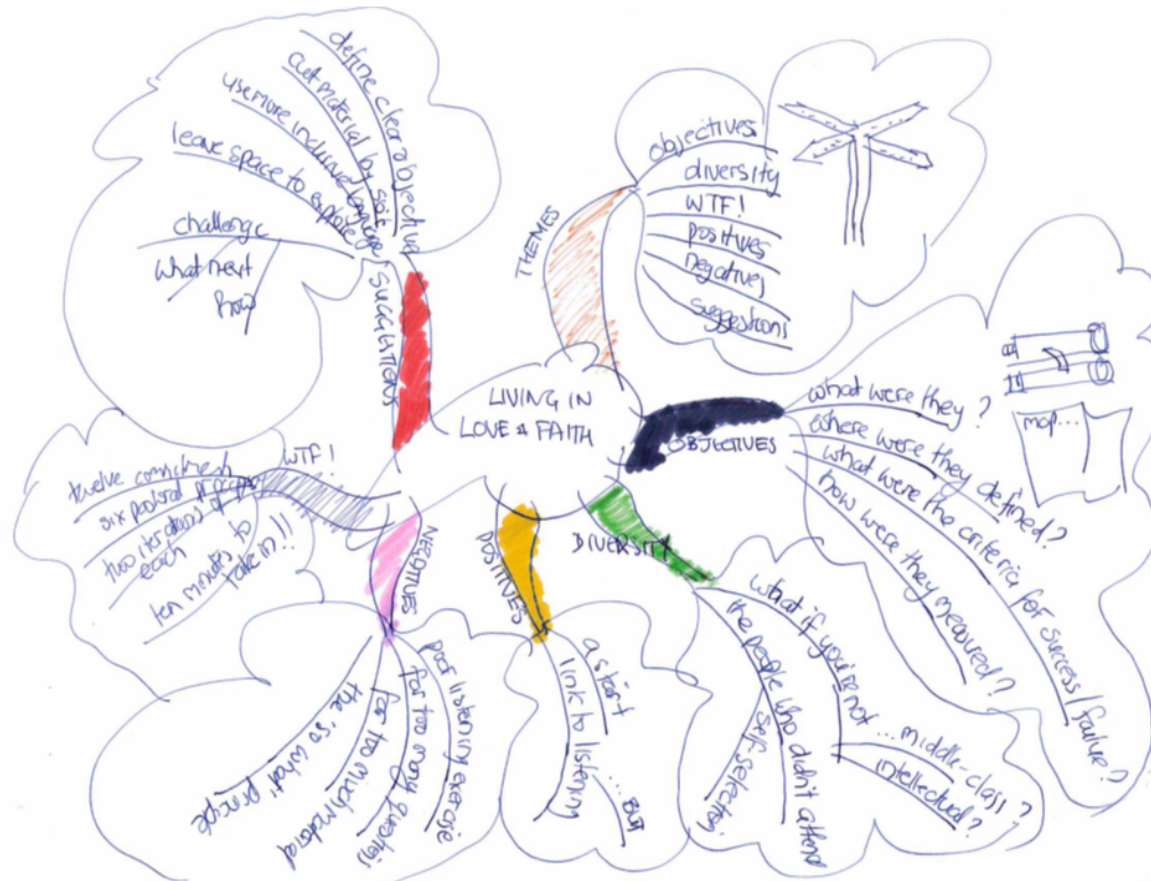 LIVING IN
LOVE & FAITH
THEMES
objectives
diversity
WTF!
positives
negatives
suggestions
OBJECTIVES
what were they?
where were they defined?
what were the criteria for success/failure?
how were they measured?
map...
DIVERSITY
what if you're not ... middle-class?
intellectual?
the people who didn't attend
self-selecting
POSITIVES
a start
link to listening
... BUT
NEGATIVES
poor listening exercise
far too many questions
far too much material
the 'so what' principle
WTF!
twelve
six pastoral
two iterations of
each
ten minutes to
take in!!
SUGGESTIONS
define clear objectives
cut material by
use more inclusive language
leave space to explore
challenge
what next
how